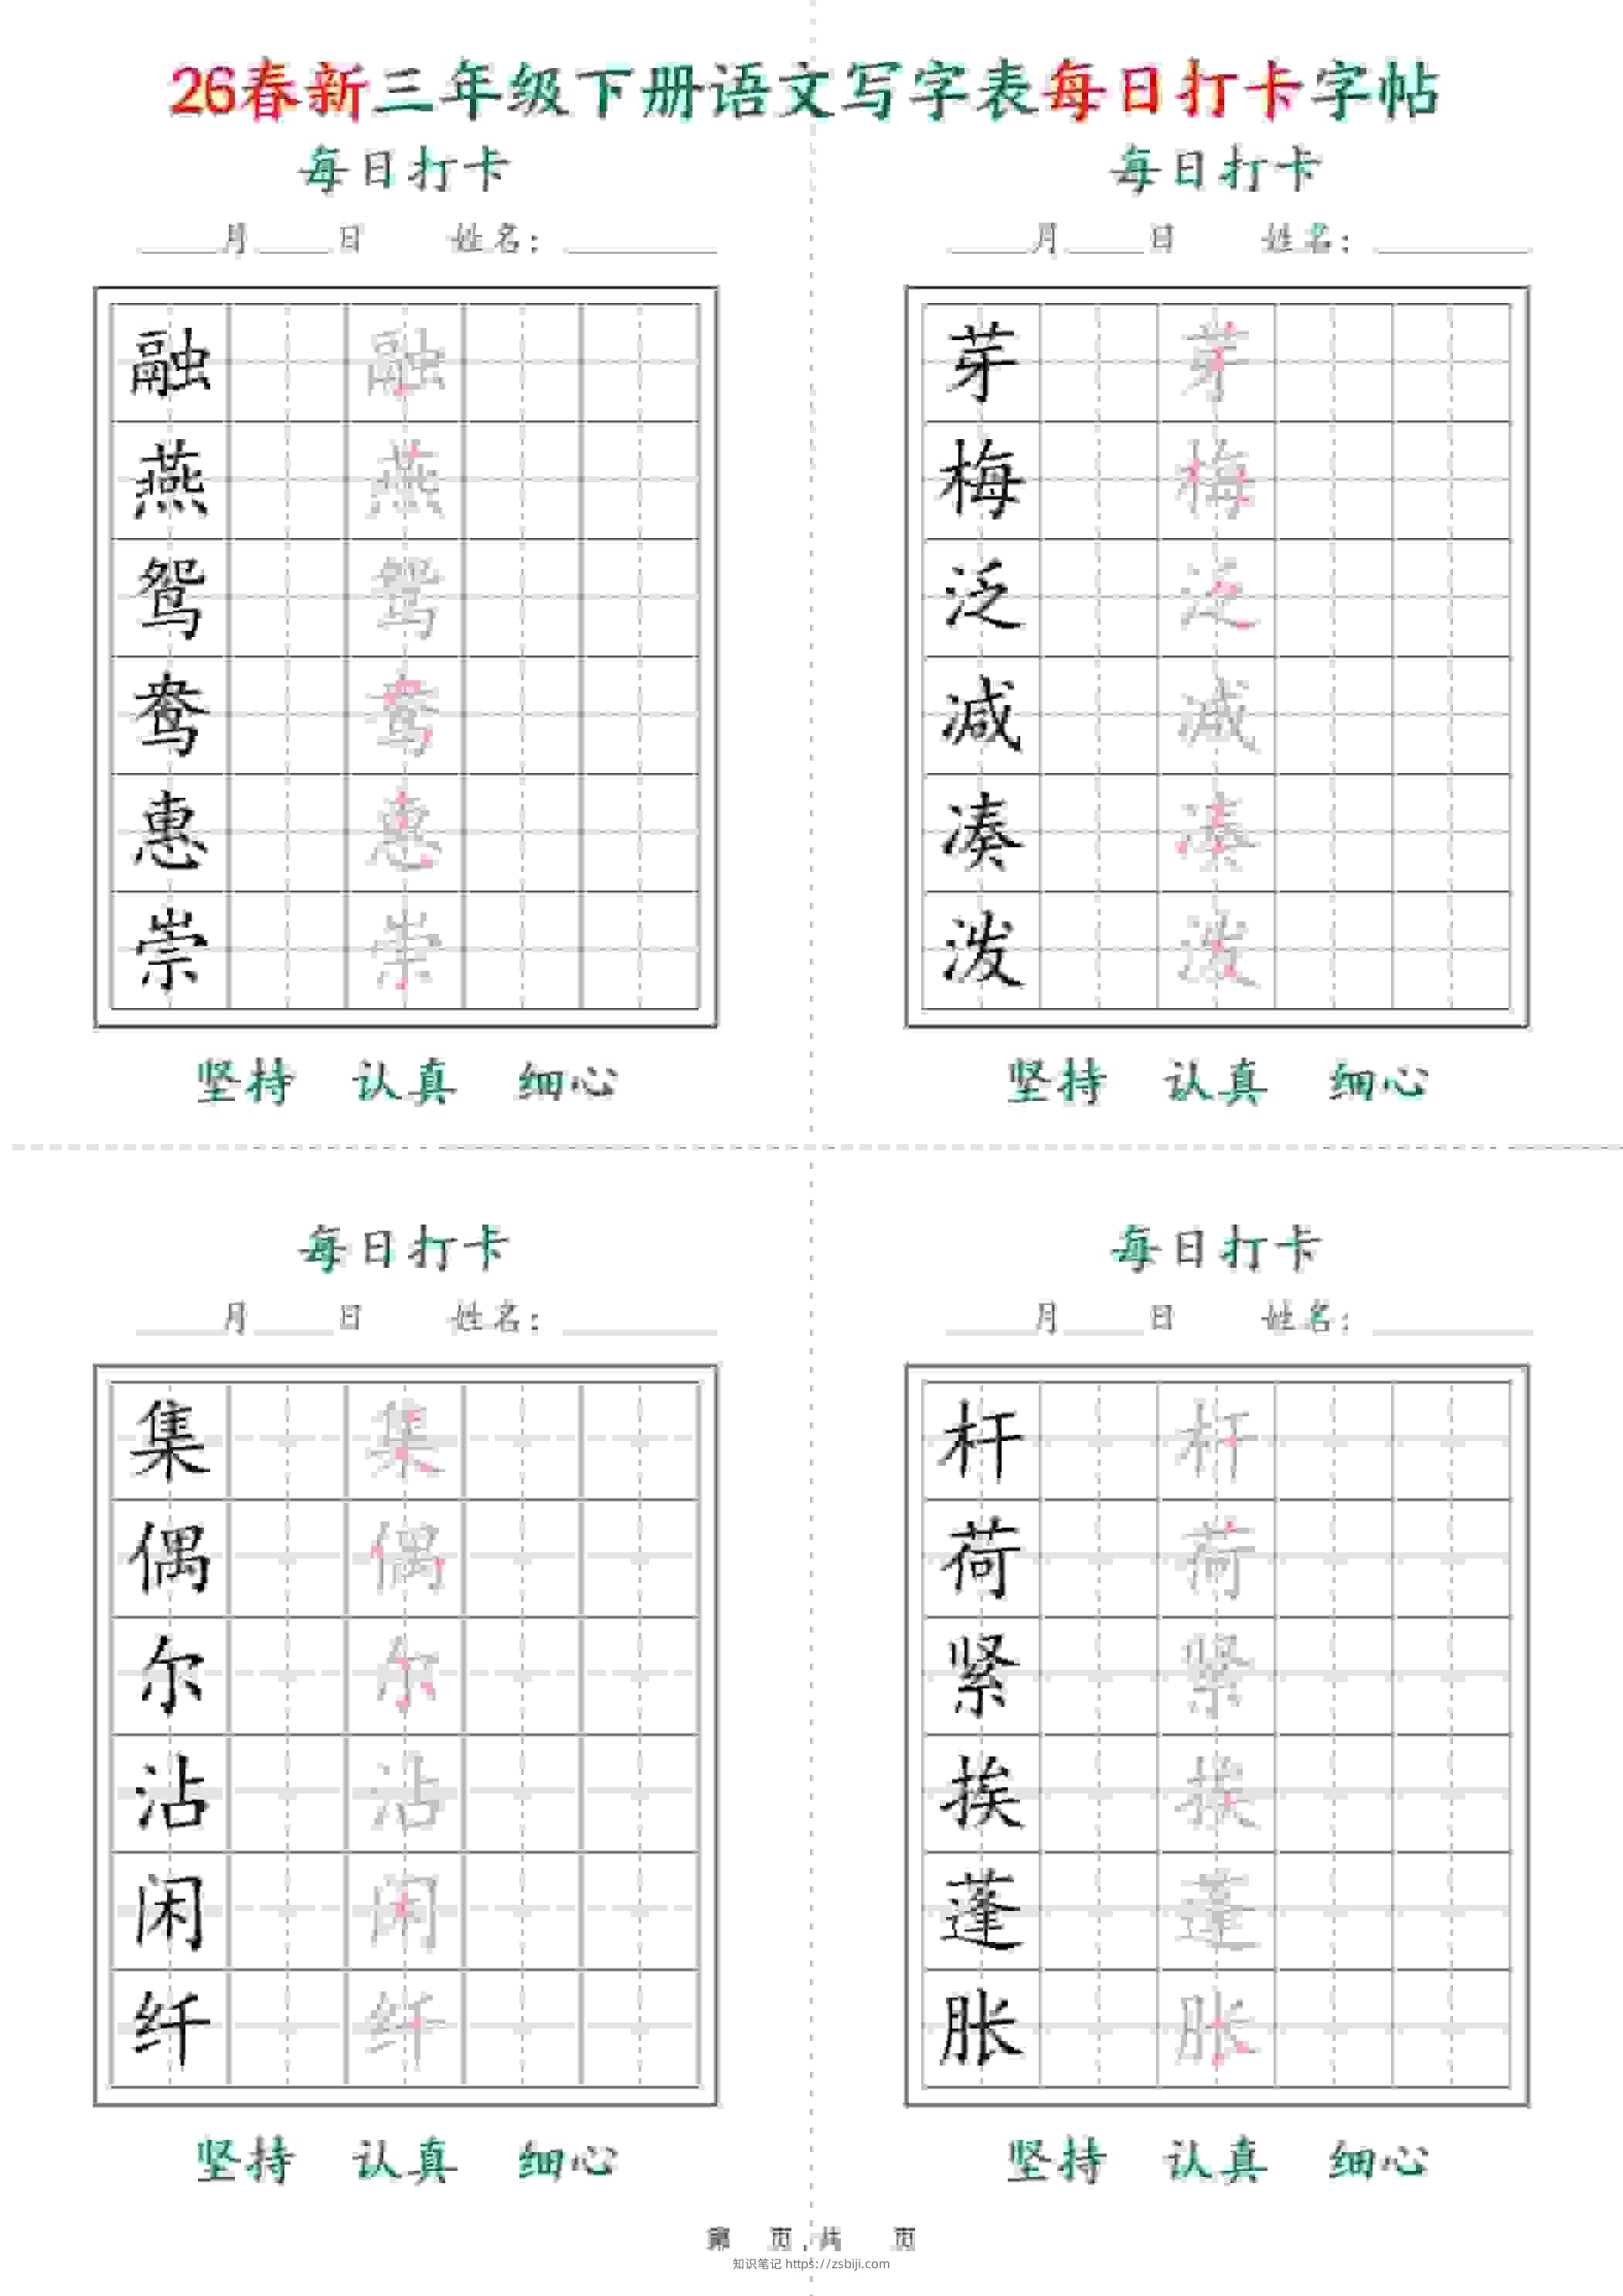 26春新三年级下册语文写字表每日打卡字帖
每日打卡
月 日 姓名：
融 融
燕 燕
鸳 鸳
鸯 鸯
惠 惠
崇 崇
坚持 认真 细心
每日打卡
月 日 姓名：
芽 芽
梅 梅
泛 泛
减 减
凑 凑
泼 泼
坚持 认真 细心
每日打卡
月 日 姓名：
集 集
偶 偶
尔 尔
沾 沾
闲 闲
纤 纤
坚持 认真 细心
每日打卡
月 日 姓名：
杆 杆
荷 荷
紧 紧
挨 挨
蓬 蓬
胀 胀
坚持 认真 细心
第 页，共 页
知识笔记 https://zsbiji.com